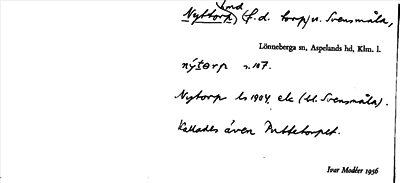 Nyttorp, (f.d. torp) u. Svensmåla,
Lönneberga sn, Aspelands hd, Klm. l.
nýtorp s. 107.
Nytorp ls 1904 ek (bl. Svensmåla).
Kallades även Puttetorpet.
Ivar Modéer 1936